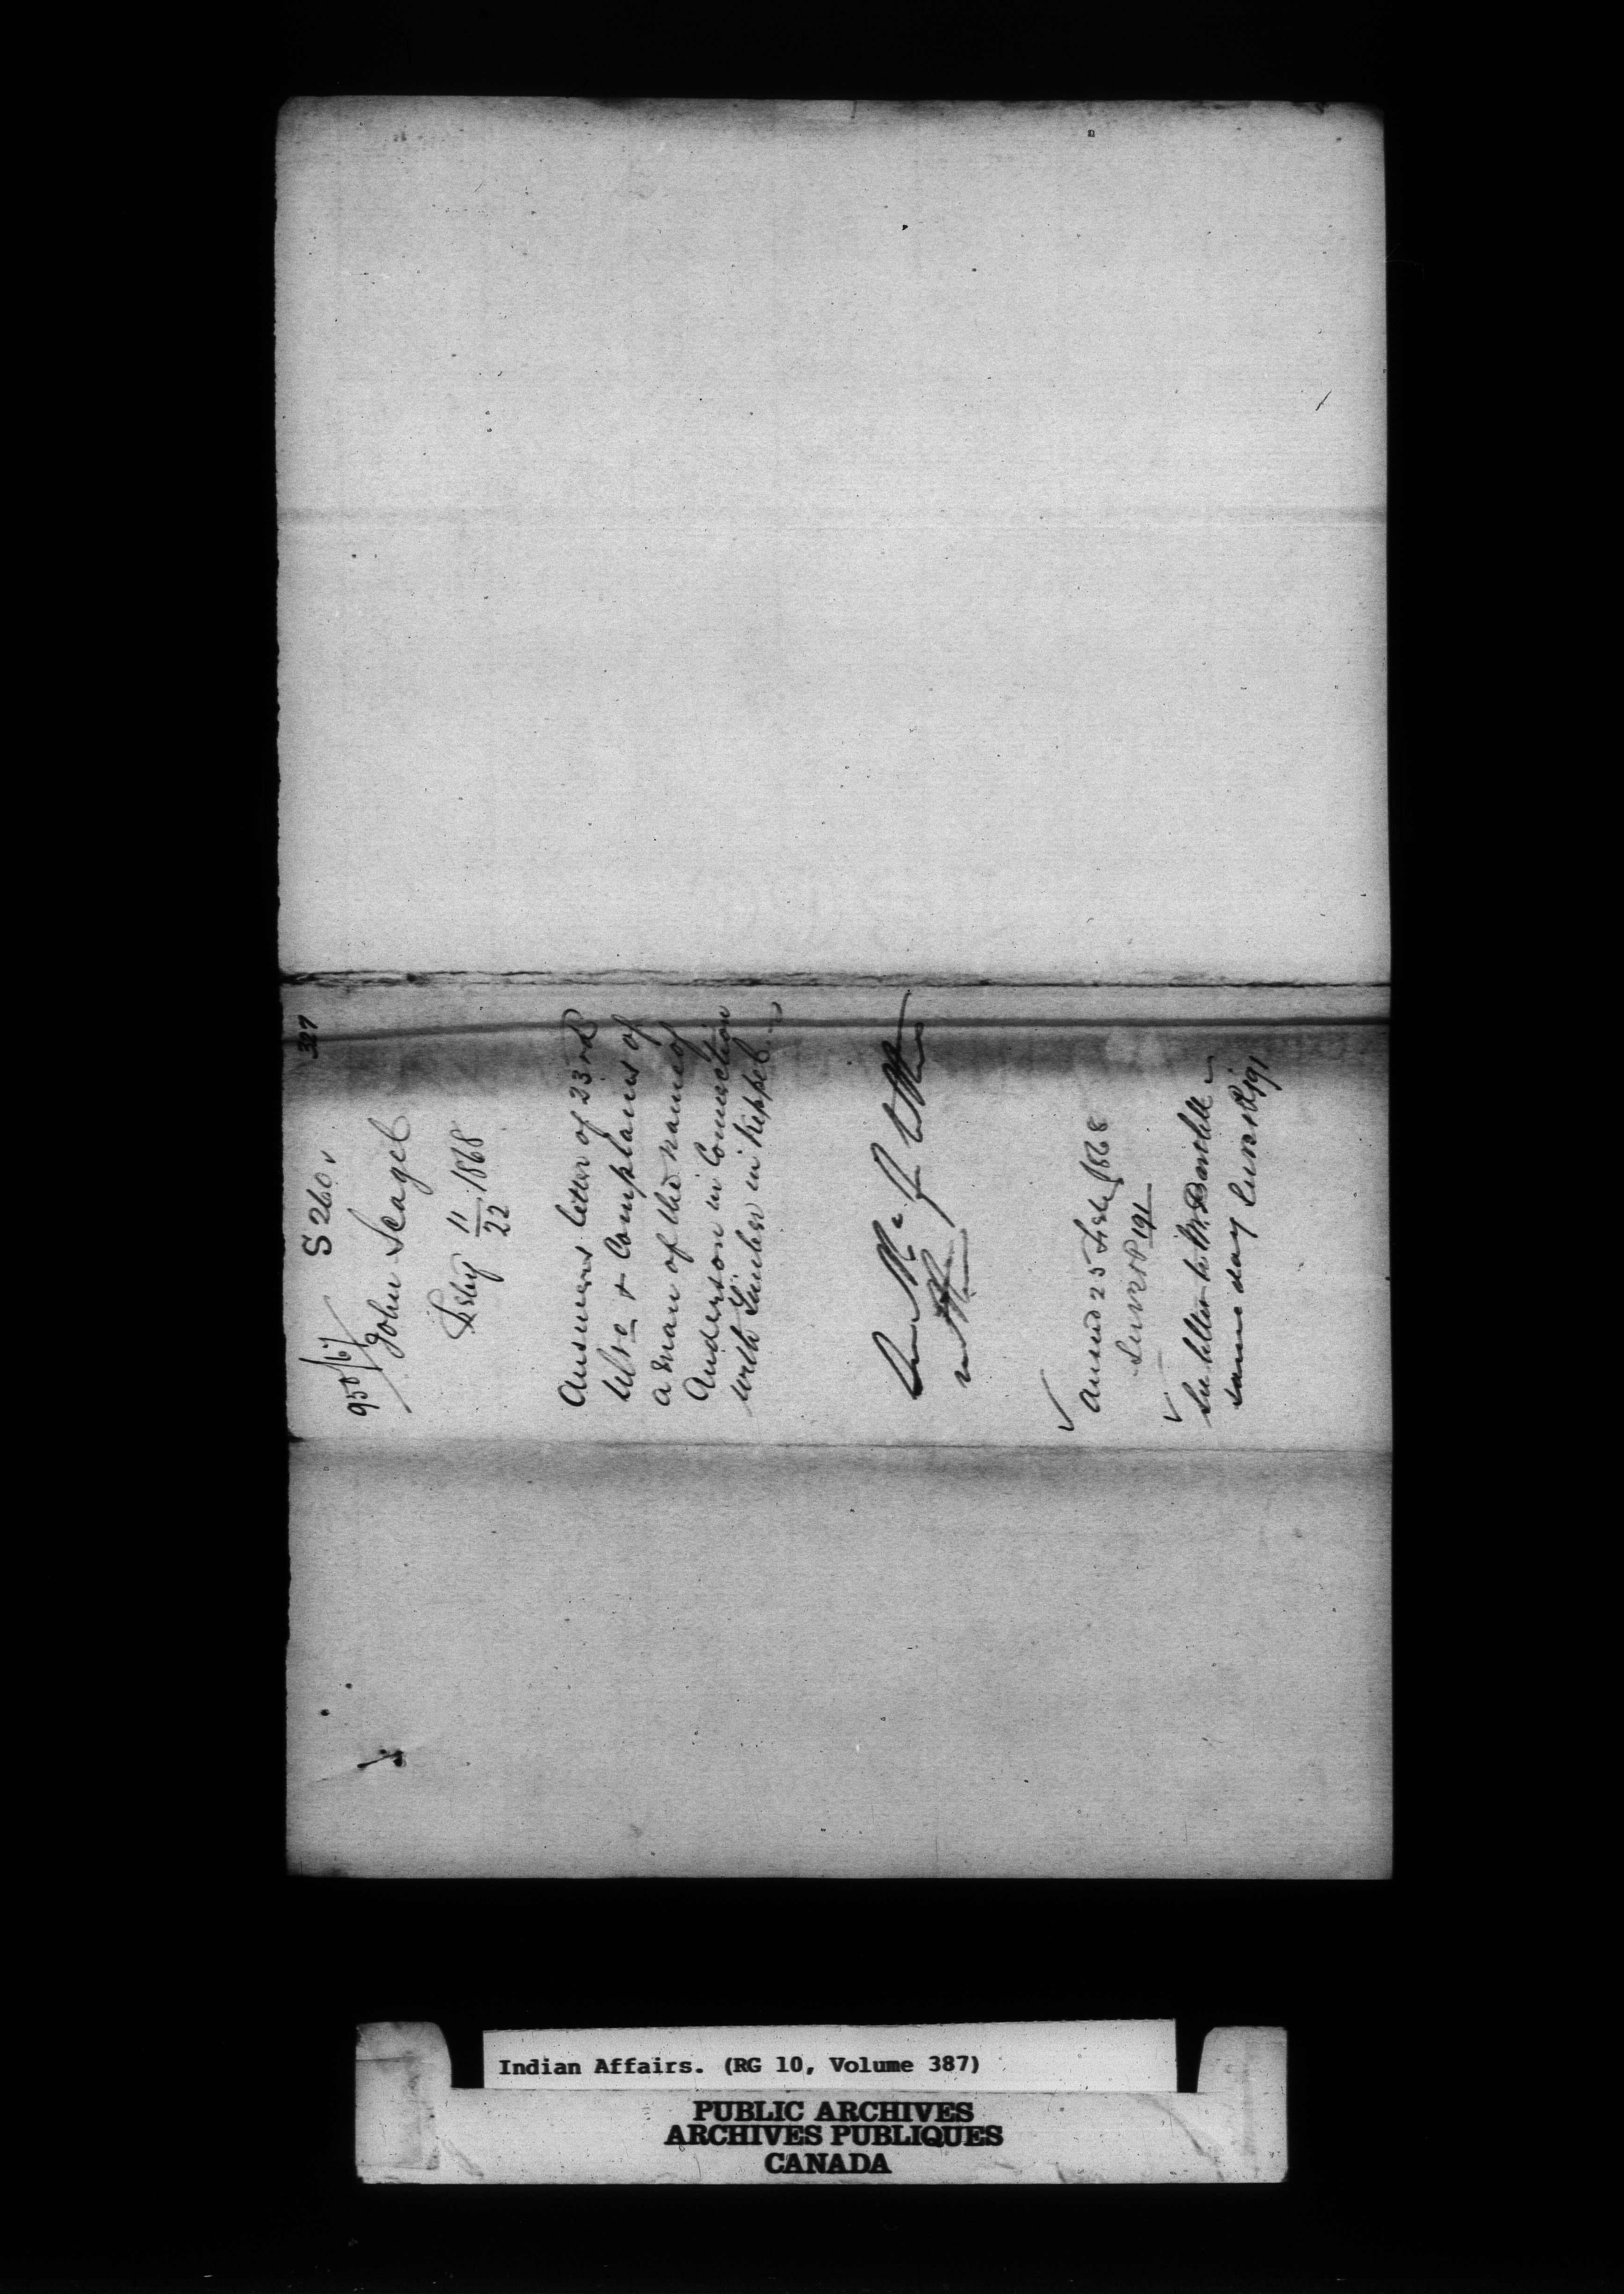 327
S 260.
950/67
John Scagel
Feby 11/22 1868
Answers letter of 23rd
& Complains of
a man of the name of
Anderson in Connection
with Timber in Keppel
Ansd 25 Feby 1868
191
See letter to Mr Bartlett
same day 191
Indian Affairs. (RG 10, Volume 387)
PUBLIC ARCHIVES
ARCHIVES PUBLIQUES
CANADA